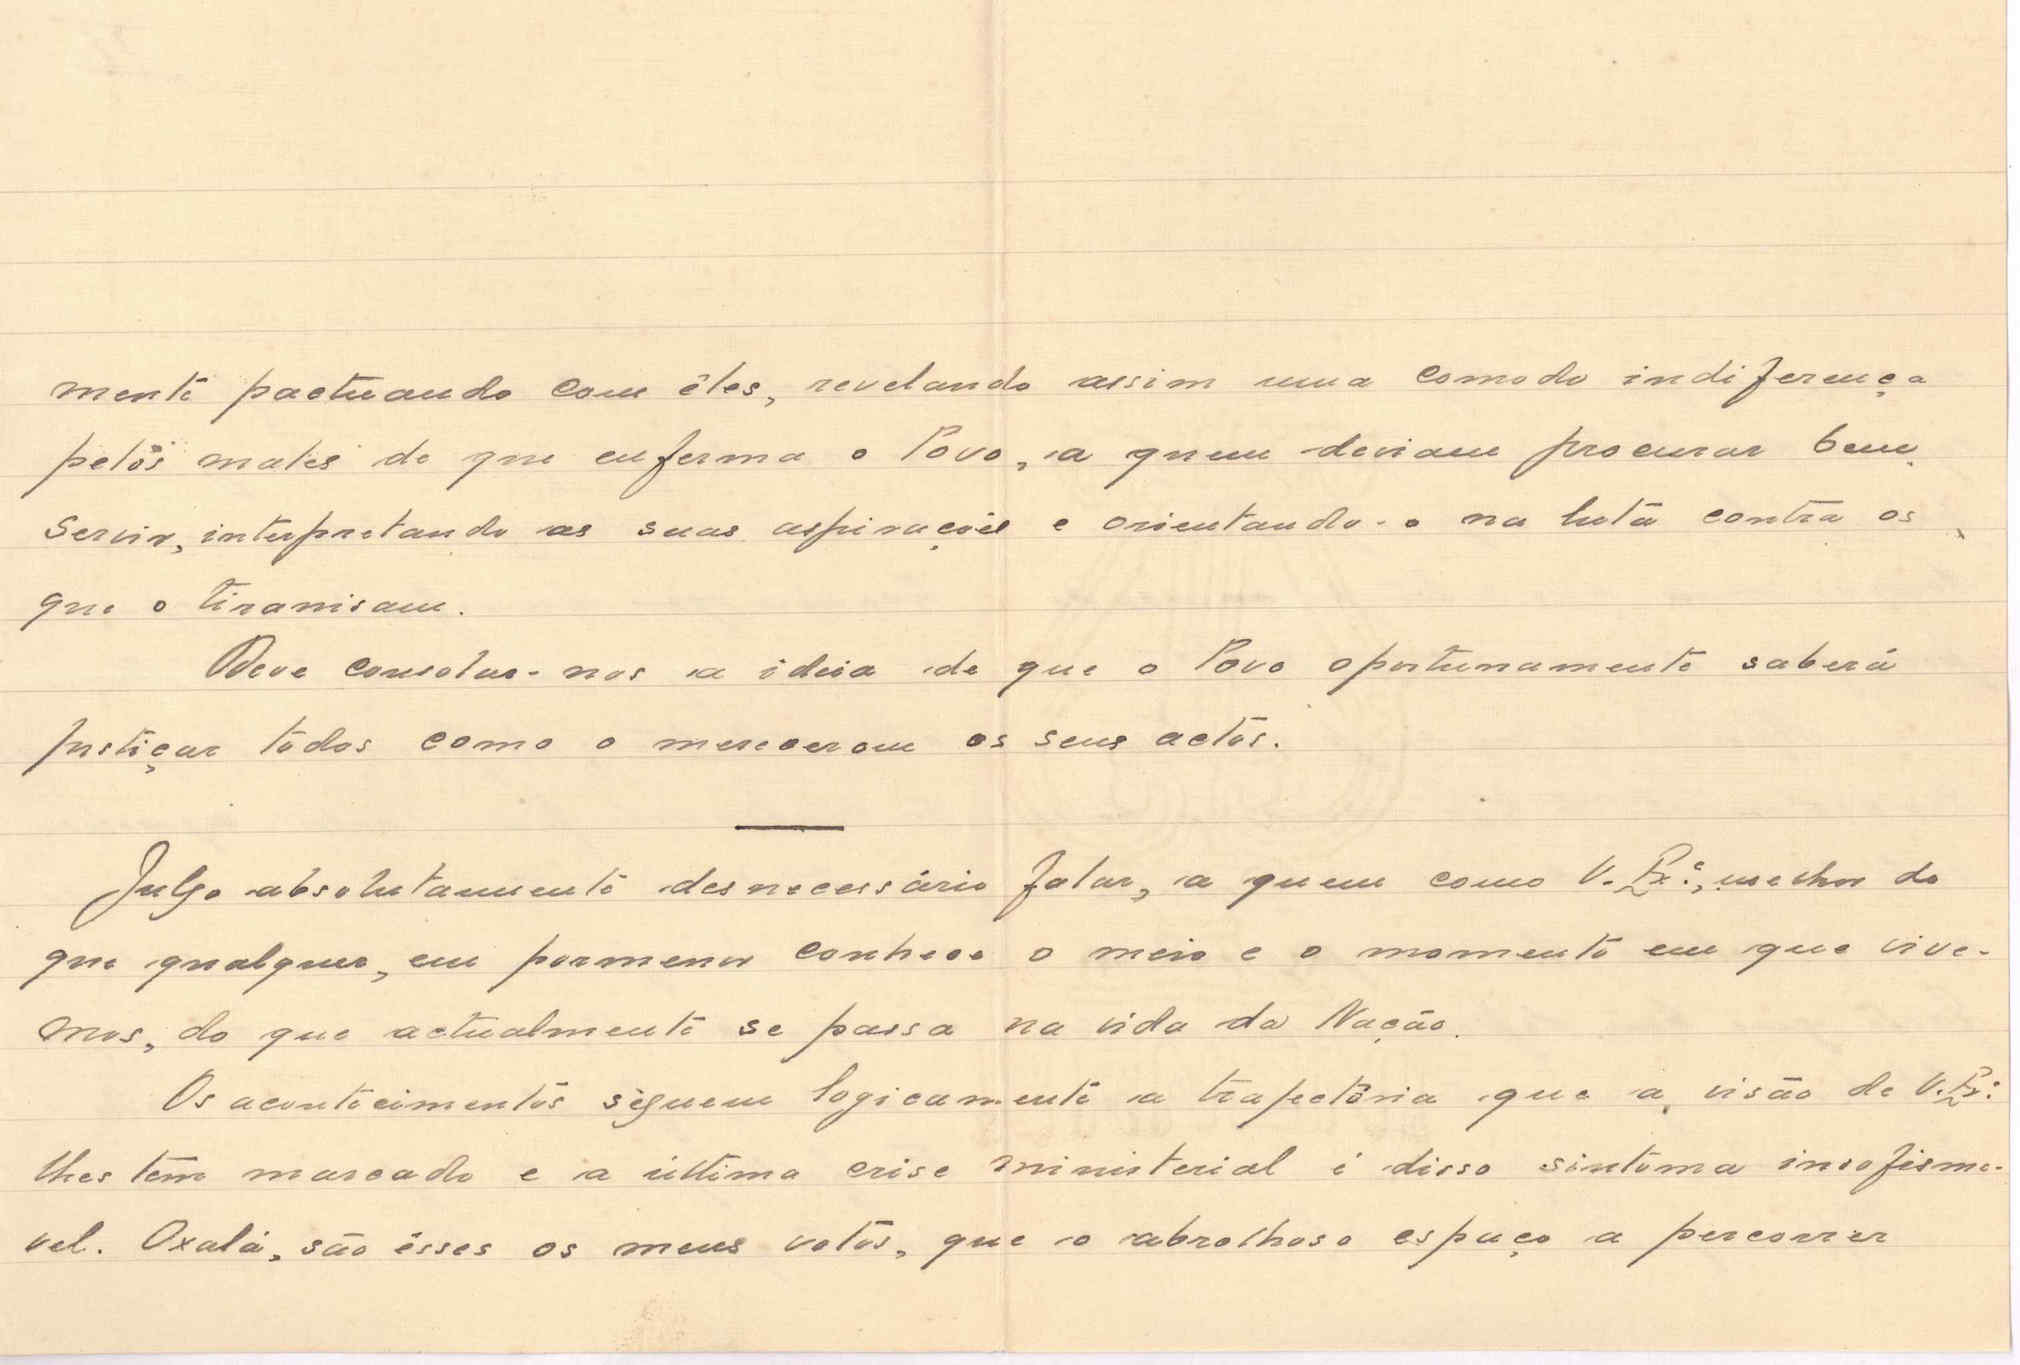 mente pactuando com êles, revelando assim uma comoda indiferença
pelos males de que enferma o Povo, a quem deviam procurar bem
servir, interpretando as suas aspirações e orientando-o na luta contra os
que o tiranisam.
Deve consolar-nos a ideia de que o Povo oportunamente saberá
justiçar todos como o mereceram os seus actos.
Julgo absolutamente desnecessário falar, a quem como V. Ex.ª, melhor do
que qualquer, em pormenor conhece o meio e o momento em que vive-
mos, do que actualmente se passa na vida da Nação.
Os acontecimentos seguem logicamente a trajectória que a visão de V. Ex.ª
lhes tem marcado e a última crise ministerial é disso sintoma insofisma-
vel. Oxalá, são êsses os meus votos, que o abrolhoso espaço a percorrer